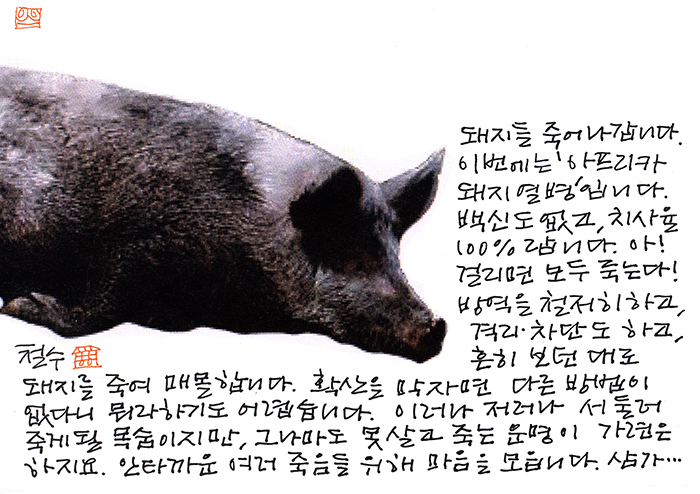 돼지들 죽어나갑니다.
이번에는 '아프리카
돼지열병'입니다.
백신도 없고, 치사율
100%랍니다. 아!
걸리면 모두 죽는다!
방역을 철저히하고,
격리·차단도 하고,
흔히 보던 대로
철수
돼지를 죽여 매몰합니다. 확산을 막자면 다른 방법이
없다니 뭐라하기도 어렵습니다. 이러나 저러나 서둘러
죽게될 목숨이지만, 그나마도 못살고 죽는 운명이 가련은
하지요. 안타까운 여러 죽음들 위해 마음을 모읍니다. 삼가…